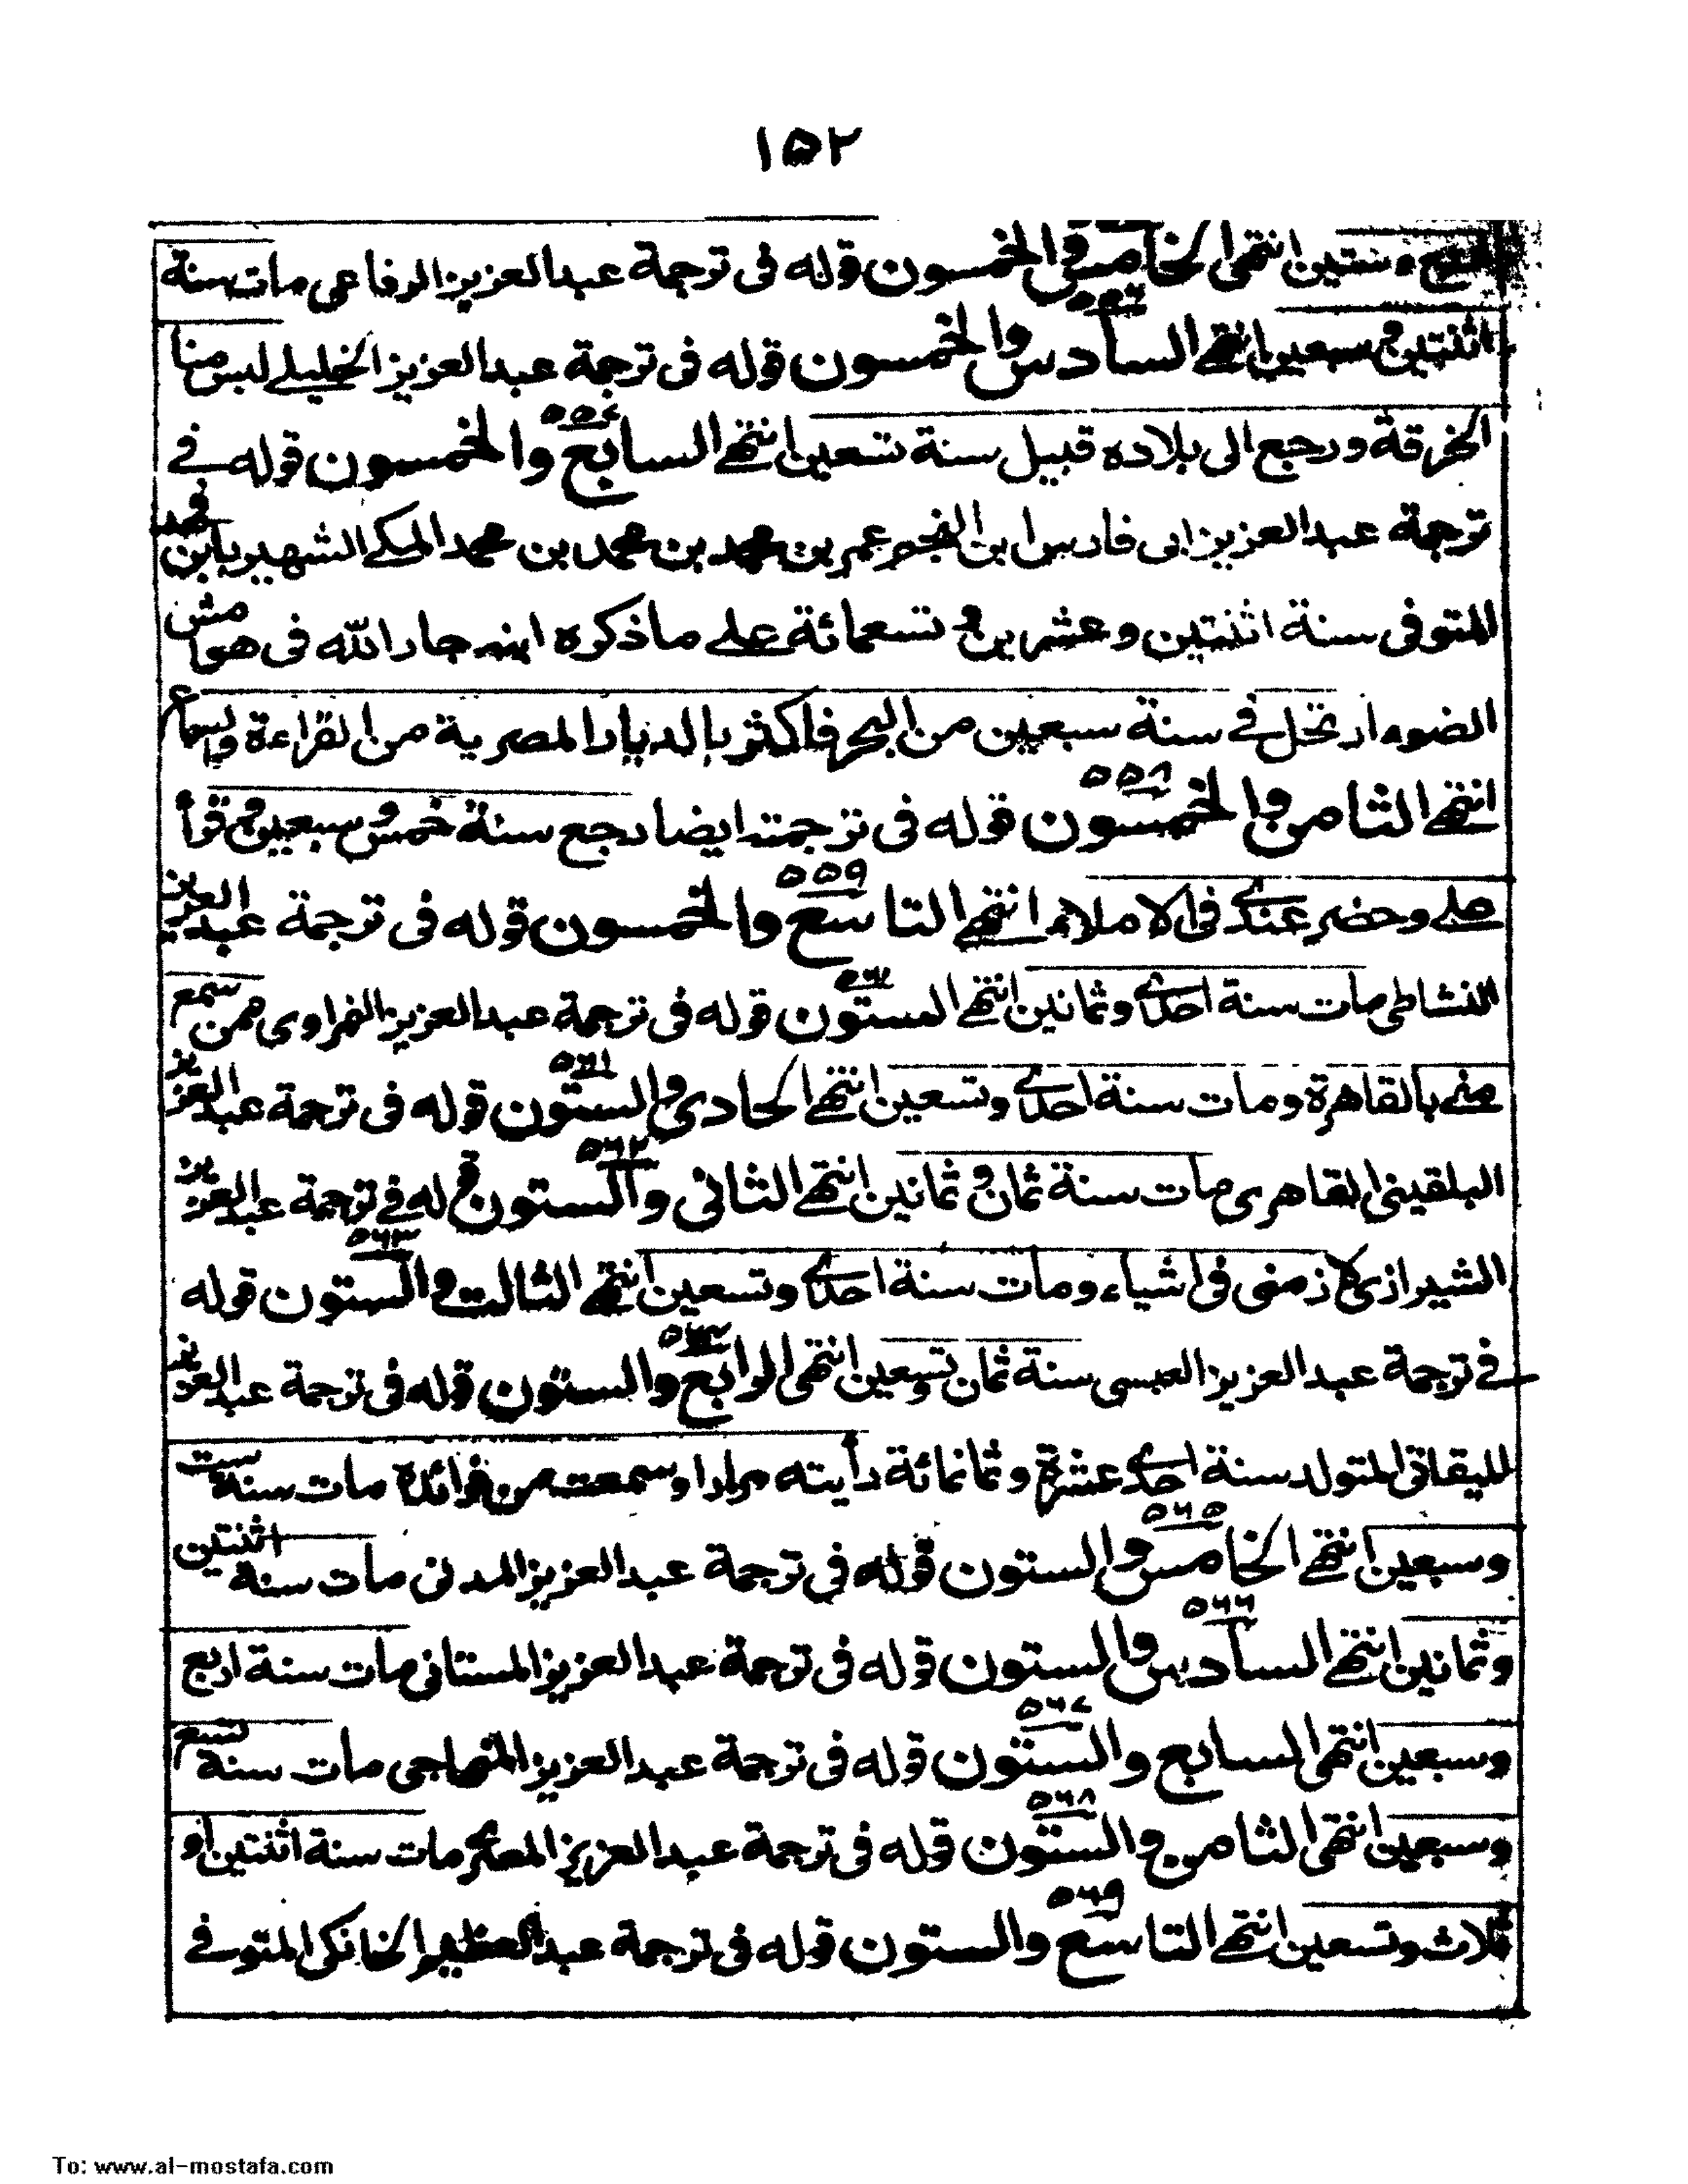 ١٥٢
وستين انتهى الخامس والخمسون قوله فى ترجمة عبدالعزيز الرفاعى مات سنة
٥٥٦
اثنتين وسبعين انتهے السادس والخمسون قوله فى ترجمة عبدالعزيز الخليلے لبس منا
٥٥٧
الخرقة ورجع الى بلاده قبيل سنة تسعين انتهے السابع والخمسون قوله فے
ترجمة عبدالعزيز ابى فارس ابن النجم عمر بن محمد بن محمد بن محمد المكے الشهير بابن فهد
المتوفى سنة اثنتين وعشرين و تسعمائة علے ما ذكره ابنه جار الله فى هوامش
الضوء ارتحل فے سنة سبعين من البحر فاكثر بالديار المصرية من القراءة والسماع
٥٥٨
انتهے الثامن والخمسون قوله فى ترجمته ايضا رجع سنة خمس وسبعين و قرأ
٥٥٩
علے وحضر عندے فى الاملاء انتهے التاسع والخمسون قوله فى ترجمة عبدالعزيز
٥٦٠
النشاطى مات سنة احدے وثمانين انتهے الستون قوله فى ترجمة عبدالعزيز النفراوى ممن سمع
٥٦١
منے بالقاهرة ومات سنة احدے وتسعين انتهے الحادى والستون قوله فى ترجمة عبدالعزيز
٥٦٢
البلقينى القاهرى مات سنة ثمان و ثمانين انتهے الثانى والستون قوله فے ترجمة عبدالعزيز
٥٦٣
الشيرازى لازمنى فى اشياء ومات سنة احدے وتسعين انتهے الثالث والستون قوله
٥٦٤
فے ترجمة عبدالعزيز العبسى سنة ثمان وتسعين انتهى الرابع والستون قوله فى ترجمة عبدالعزيز
الميقاتى المتولد سنة احدے عشرة وثمانمائة رأيته مرارا وسمعت من فوائده مات سنة ست
٥٦٥
وسبعين انتهے الخامس والستون قوله فى ترجمة عبدالعزيز المدنى مات سنة اثنتين
٥٦٦
وثمانين انتهے السادس والستون قوله فى ترجمة عبدالعزيز المستانى مات سنة اربع
٥٦٧
وسبعين انتهى السابع والستون قوله فى ترجمة عبدالعزيز المنهاجى مات سنة تسع
٥٦٨
وسبعين انتهى الثامن والستون قوله فى ترجمة عبدالعزيز مات سنة اثنتين او
٥٦٩
ثلاث وتسعين انتهے التاسع والستون قوله فى ترجمة عبدالعظيم الخانكى المتوفے
To: www.al-mostafa.com